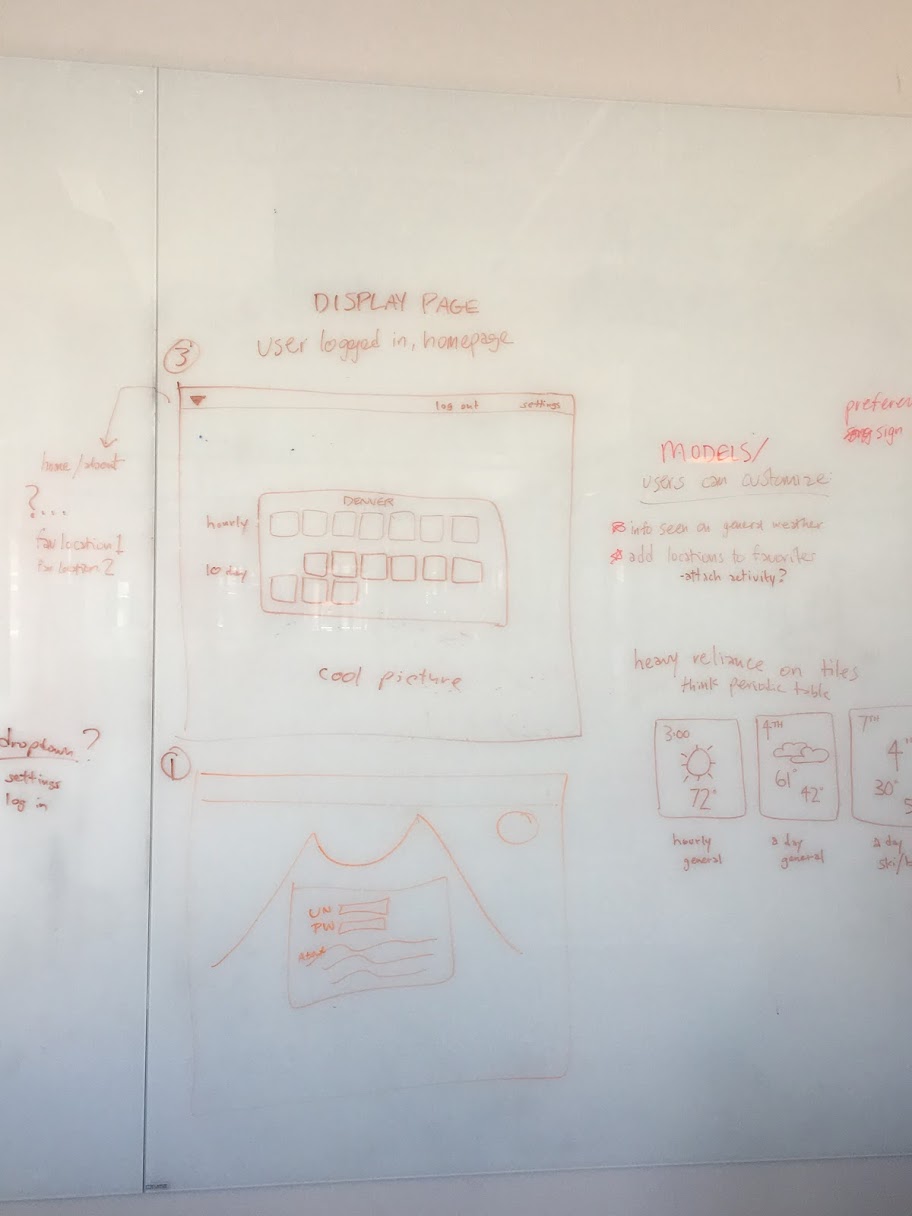 DISPLAY PAGE
user logged in, homepage
3
log out
settings
home/about
?...
fav location 1
fav location 2
DENVER
hourly
10 day
cool picture
dropdown?
settings
log in
1
UN
PW
About
MODELS/
users can customize
info seen on general weather
add locations to favorites
-attach activity?
heavy reliance on tiles
think periodic table
3:00
72°
hourly
general
4TH
61°
42°
day
general
7TH
4"
30°
day
ski/b
preferen
sign